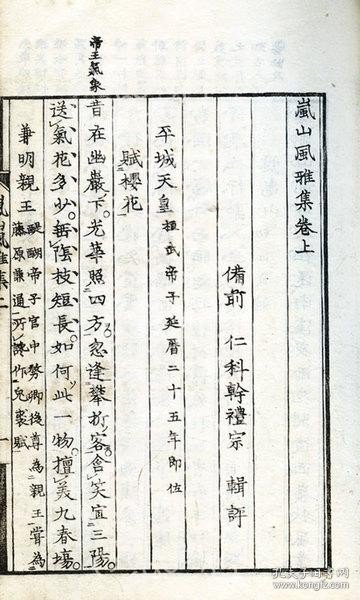 嵐山風雅集卷上
備前　仁科幹禮宗　輯評
平城天皇 桓武帝子延曆二十五年即位
賦櫻花
帝王氣象
昔在幽巖下。光華照四方。忽逢攀折客。含笑亘三陽。
送氣花多少。垂陰枝短長。如何此一物。擅美九春場。
兼明親王 醍醐帝子官中務卿後尊為親王嘗為
藤原謙通所讒作兔裘賦
風雅集
孔夫子旧书网